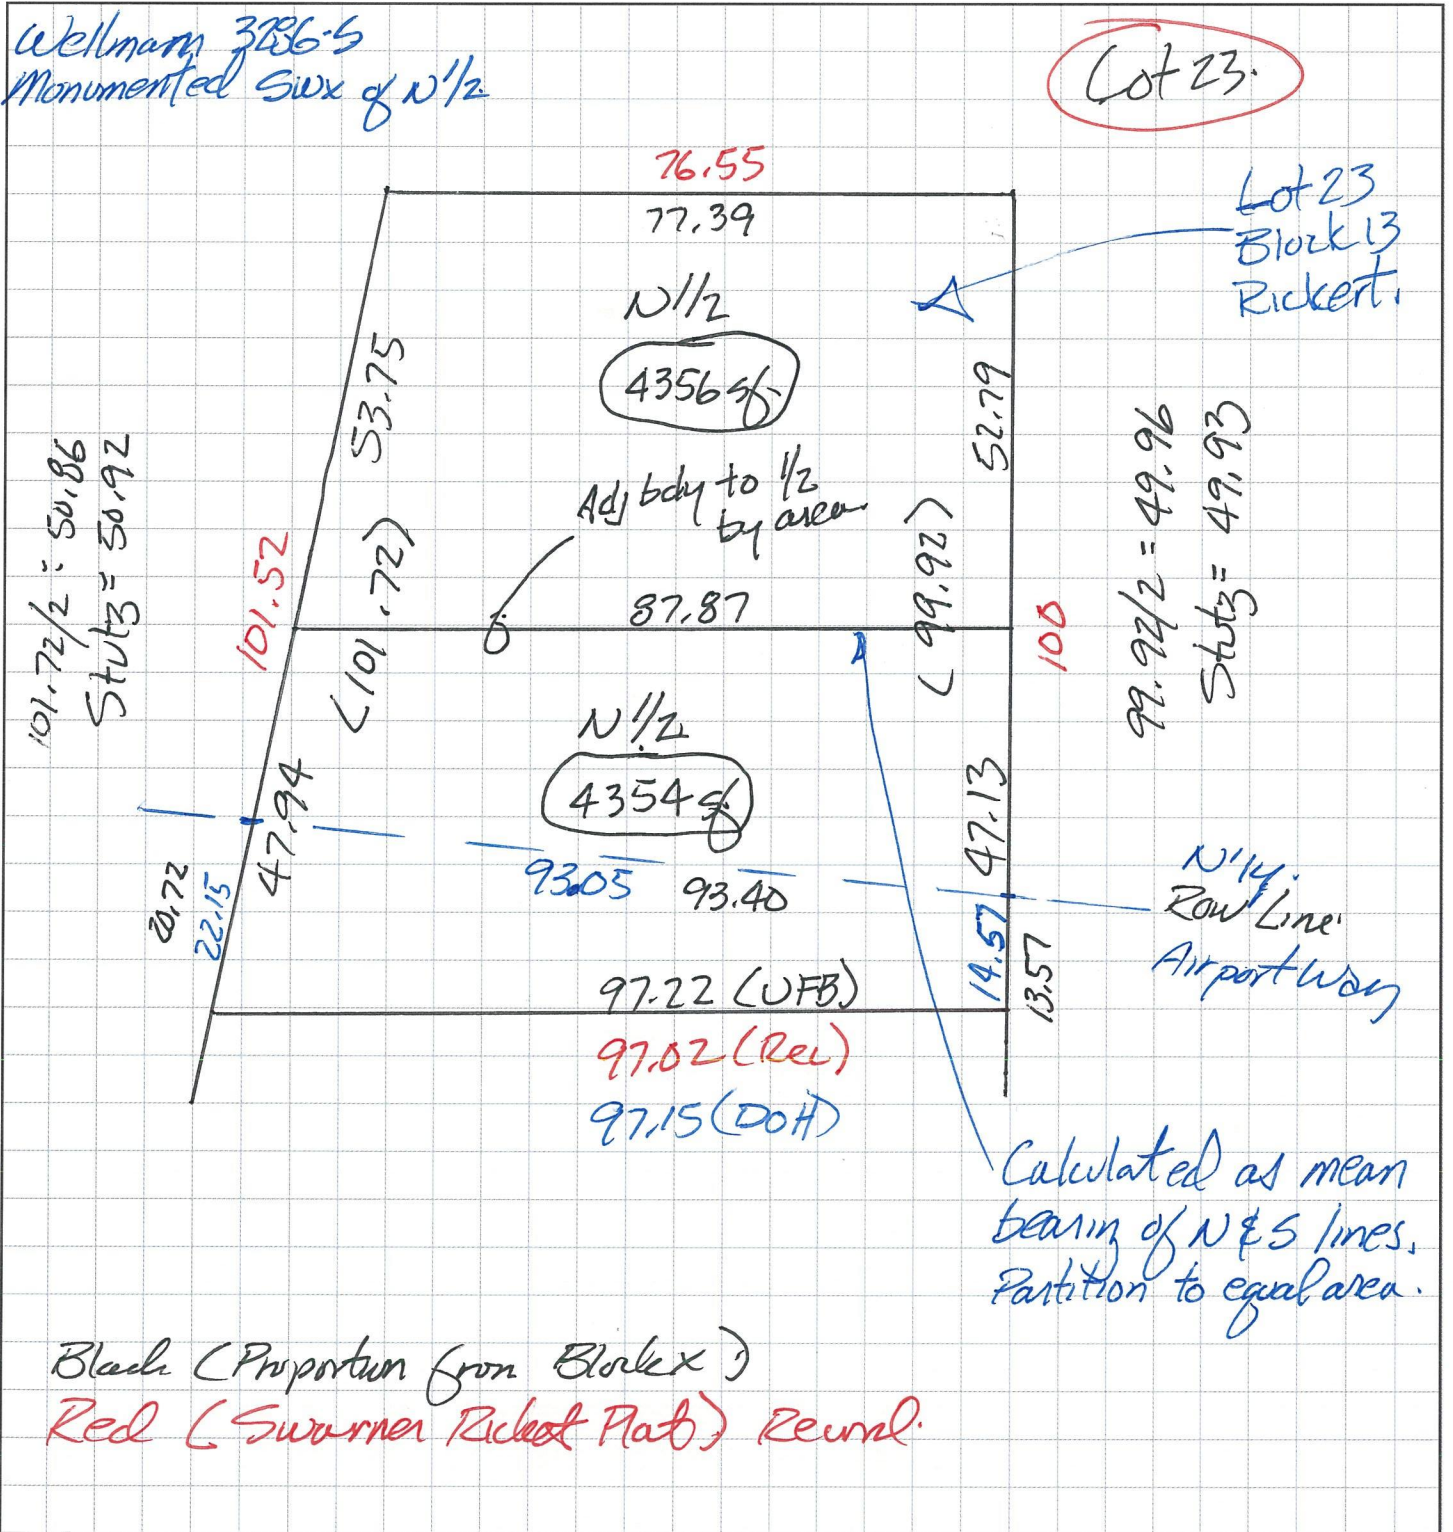 Wellmann 3286-S
Monumented SWx of N 1/2
Lot 23.
76.55
77.39
Lot 23
Block 13
Rickert.
N 1/2
4356 sf.
53.75
52.79
Adj bdy to 1/2
by area.
101.72/2 = 50.86
Stutz = 50.92
101.52
(101.72)
87.87
(99.92)
100
99.92/2 = 49.96
Stutz = 49.93
N 1/2
4354 sf.
47.94
47.13
93.05 93.40
20.72
22.15
14.57
13.57
N'ly.
Row Line.
Airport Way
97.22 (UFB)
97.02 (Rec)
97.15 (DOH)
Calculated as mean
bearing of N & S lines.
Partition to equal area.
Black (Proportion from Block x)
Red (Swarner Rickert Plat) Record.